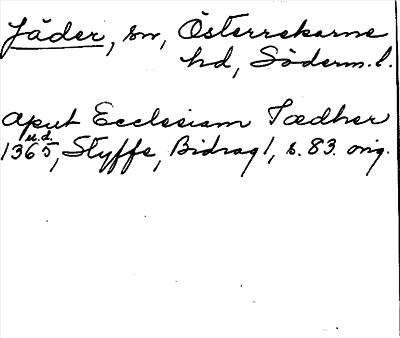 Jäder, sn, Österrekarne
hd, Söderm. l.
aput Ecclesiam Iædher
u.d.
1365, Styffe, Bidrag 1, s. 83. orig.